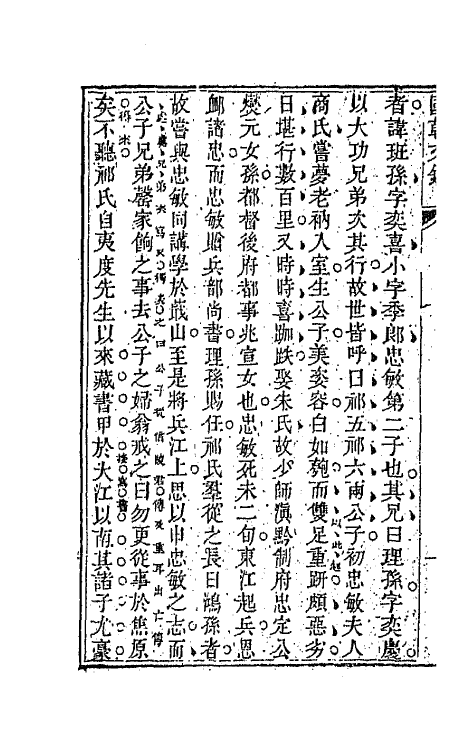 國朝文錄
者諱班孫字奕喜小字季郎忠敏第二子也其兄曰理孫字奕慶
以大功兄弟次其行故世皆呼曰祁五祁六兩公子初忠敏夫人
商氏嘗夢老衲入室生公子美姿容白如瓠而雙足重趼頗惡劣
日堪行數百里又時時喜跏趺娶朱氏故少師滇黔制府忠定公
燮元女孫都督後府都事兆宣女也忠敏死未二旬東江起兵恩
卹諸忠而忠敏贈兵部尚書理孫賜任祁氏羣從之長曰鴻孫者
故嘗與忠敏同講學於蕺山至是將兵江上思以申忠敏之志而
公子兄弟罄家餉之事去公子之婦翁戒之曰勿更從事於焦原
矣不聽祁氏自夷度先生以來藏書甲於大江以南其諸子尤豪